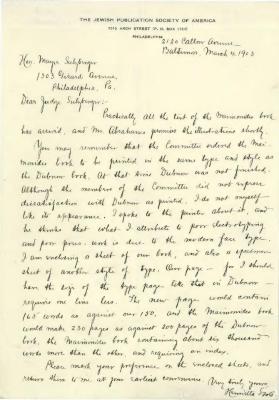 THE JEWISH PUBLICATION SOCIETY OF AMERICA
1015 ARCH STREET (P. O. BOX 1164)
PHILADELPHIA
2120 Callow Avenue
Baltimore, March 4, 1903
Hon. Mayer Sulzberger
1303 Girard Avenue,
Philadelphia, Pa.
Dear Judge Sulzberger:-
Practically all the text of the Maimonides book
has arrived, and Mr. Abrahams promises the illustrations shortly.
You may remember that the Committee ordered the Mai-
monides book to be printed in the same type and style as
the Dubnow book. At that time Dubnow was not finished.
Although the members of the Committee did not express
dissatisfaction with Dubnow as printed, I do not myself
like its appearance. I spoke to the printer about it, and
he thinks that what I attribute to poor electrotyping
and poor press work is due to the modern face type.
I am enclosing a sheet of our book, and also a specimen
sheet of another style of type. Our page - for I should
have the size of the type page like that in Dubnow -
requires one line less. The new page would contain
165 words as against our 150, and the Maimonides book
would make 230 pages as against 200 pages of the Dubnow
book, the Maimonides book containing about six thousand
words more than the other, and requiring an index.
Please mark your preference on the enclosed sheets, and
return them to me at your earliest convenience.
Very truly yours,
Henrietta Szold